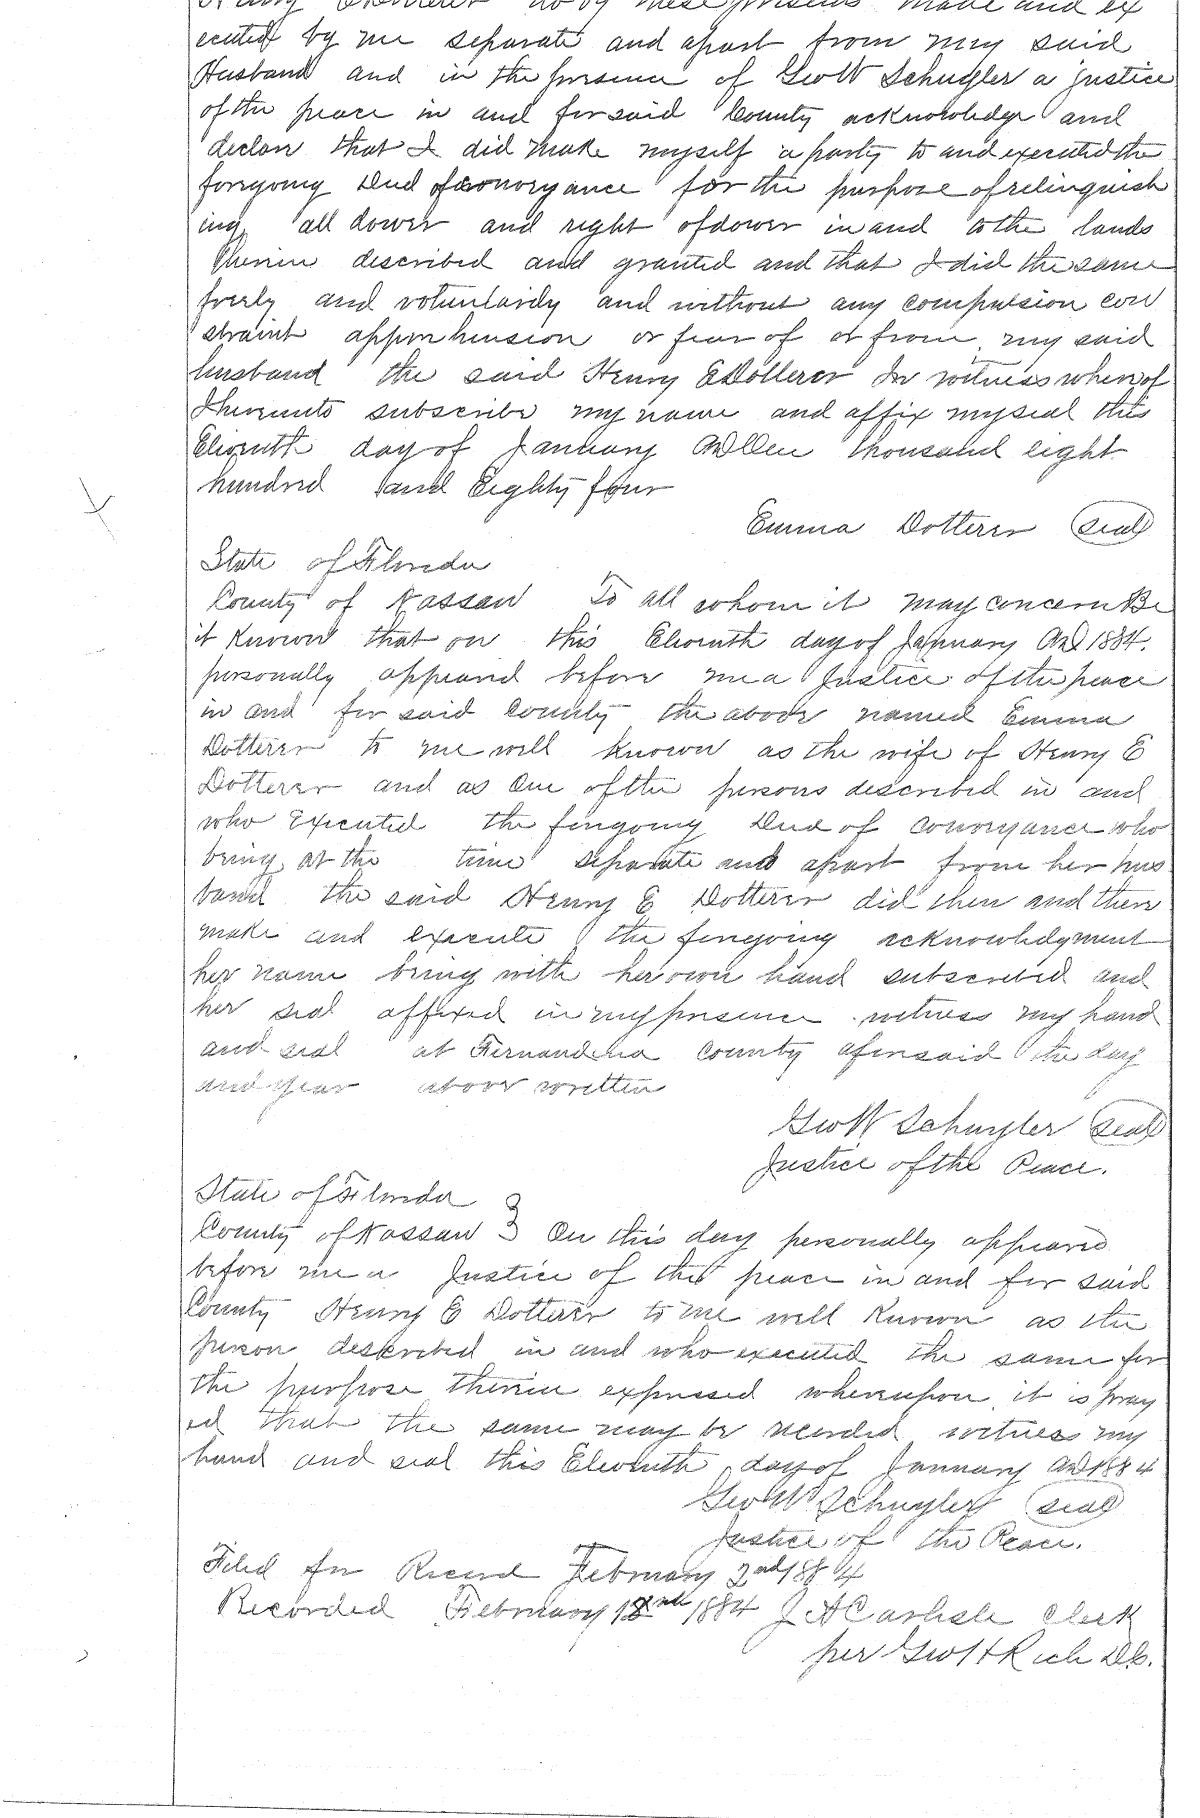 Henry E Dotterer do by these presents made and ex
ecuted by me separate and apart from my said
Husband and in the presence of Geo W Schuyler a justice
of the peace in and for said County acknowledge and
declare that I did make myself a party to and executed the
foregoing Deed of conveyance for the purpose of relinquish
ing all dower and right of dower in and to the lands
therein described and granted and that I did the same
freely and voluntarily and without any compulsion con
straint apprehension or fear of or from my said
husband the said Henry E Dotterer In witness whereof
I hereunto subscribe my name and affix my seal this
Eleventh day of January AD One thousand eight
hundred and Eighty four
Emma Dotterer (seal)
State of Florida
County of Nassau To all whom it may concern Be
it Known that on this Eleventh day of January AD 1884.
personally appeared before me a Justice of the peace
in and for said County the above named Emma
Dotterer to me well known as the wife of Henry E
Dotterer and as One of the persons described in and
who Executed the foregoing Deed of conveyance who
being at the time separate and apart from her hus
band the said Henry E Dotterer did then and there
make and execute the foregoing acknowledgment
her name being with her own hand subscribed and
her seal affixed in my presence witness my hand
and seal at Fernandina County aforesaid the day
and year above written
Geo W Schuyler (seal)
Justice of the Peace.
State of Florida
County of Nassau } On this day personally appeared
before me a Justice of the peace in and for said
County Henry E Dotterer to me well Known as the
person described in and who executed the same for
the purpose therein expressed whereupon it is pray
ed that the same may be recorded witness my
hand and seal this Eleventh day of January AD 1884
Geo W Schuyler (seal)
Justice of the Peace.
Filed for Record February 2nd 1884
Recorded February 1884 J A Carlisle Clerk
per Geo H Rich D.C.